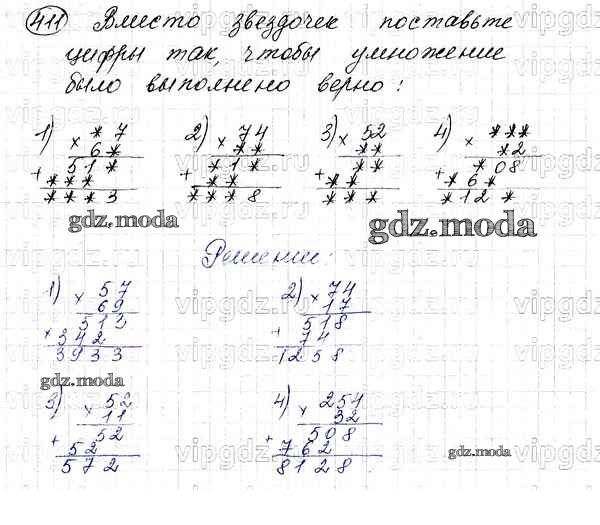 411 Вместо звездочек поставьте
цифры так, чтобы умножение
было выполнено верно:
1) × * 7 2) × 74 3) × 52 4) × ***
6 * * * * * * 2
+ 5 1 * + * 1 * + * * + * 0 8
* * * * * * * * 6 *
* * * 3 * * * 8 * * * * 1 2 *
gdz.moda gdz.moda
Решение:
1) × 57 2) × 74
69 17
+ 513 + 518
342 74
3933 1258
gdz.moda
3) × 52 4) × 254
11 32
+ 52 + 508
52 762
572 8128.
gdz.moda